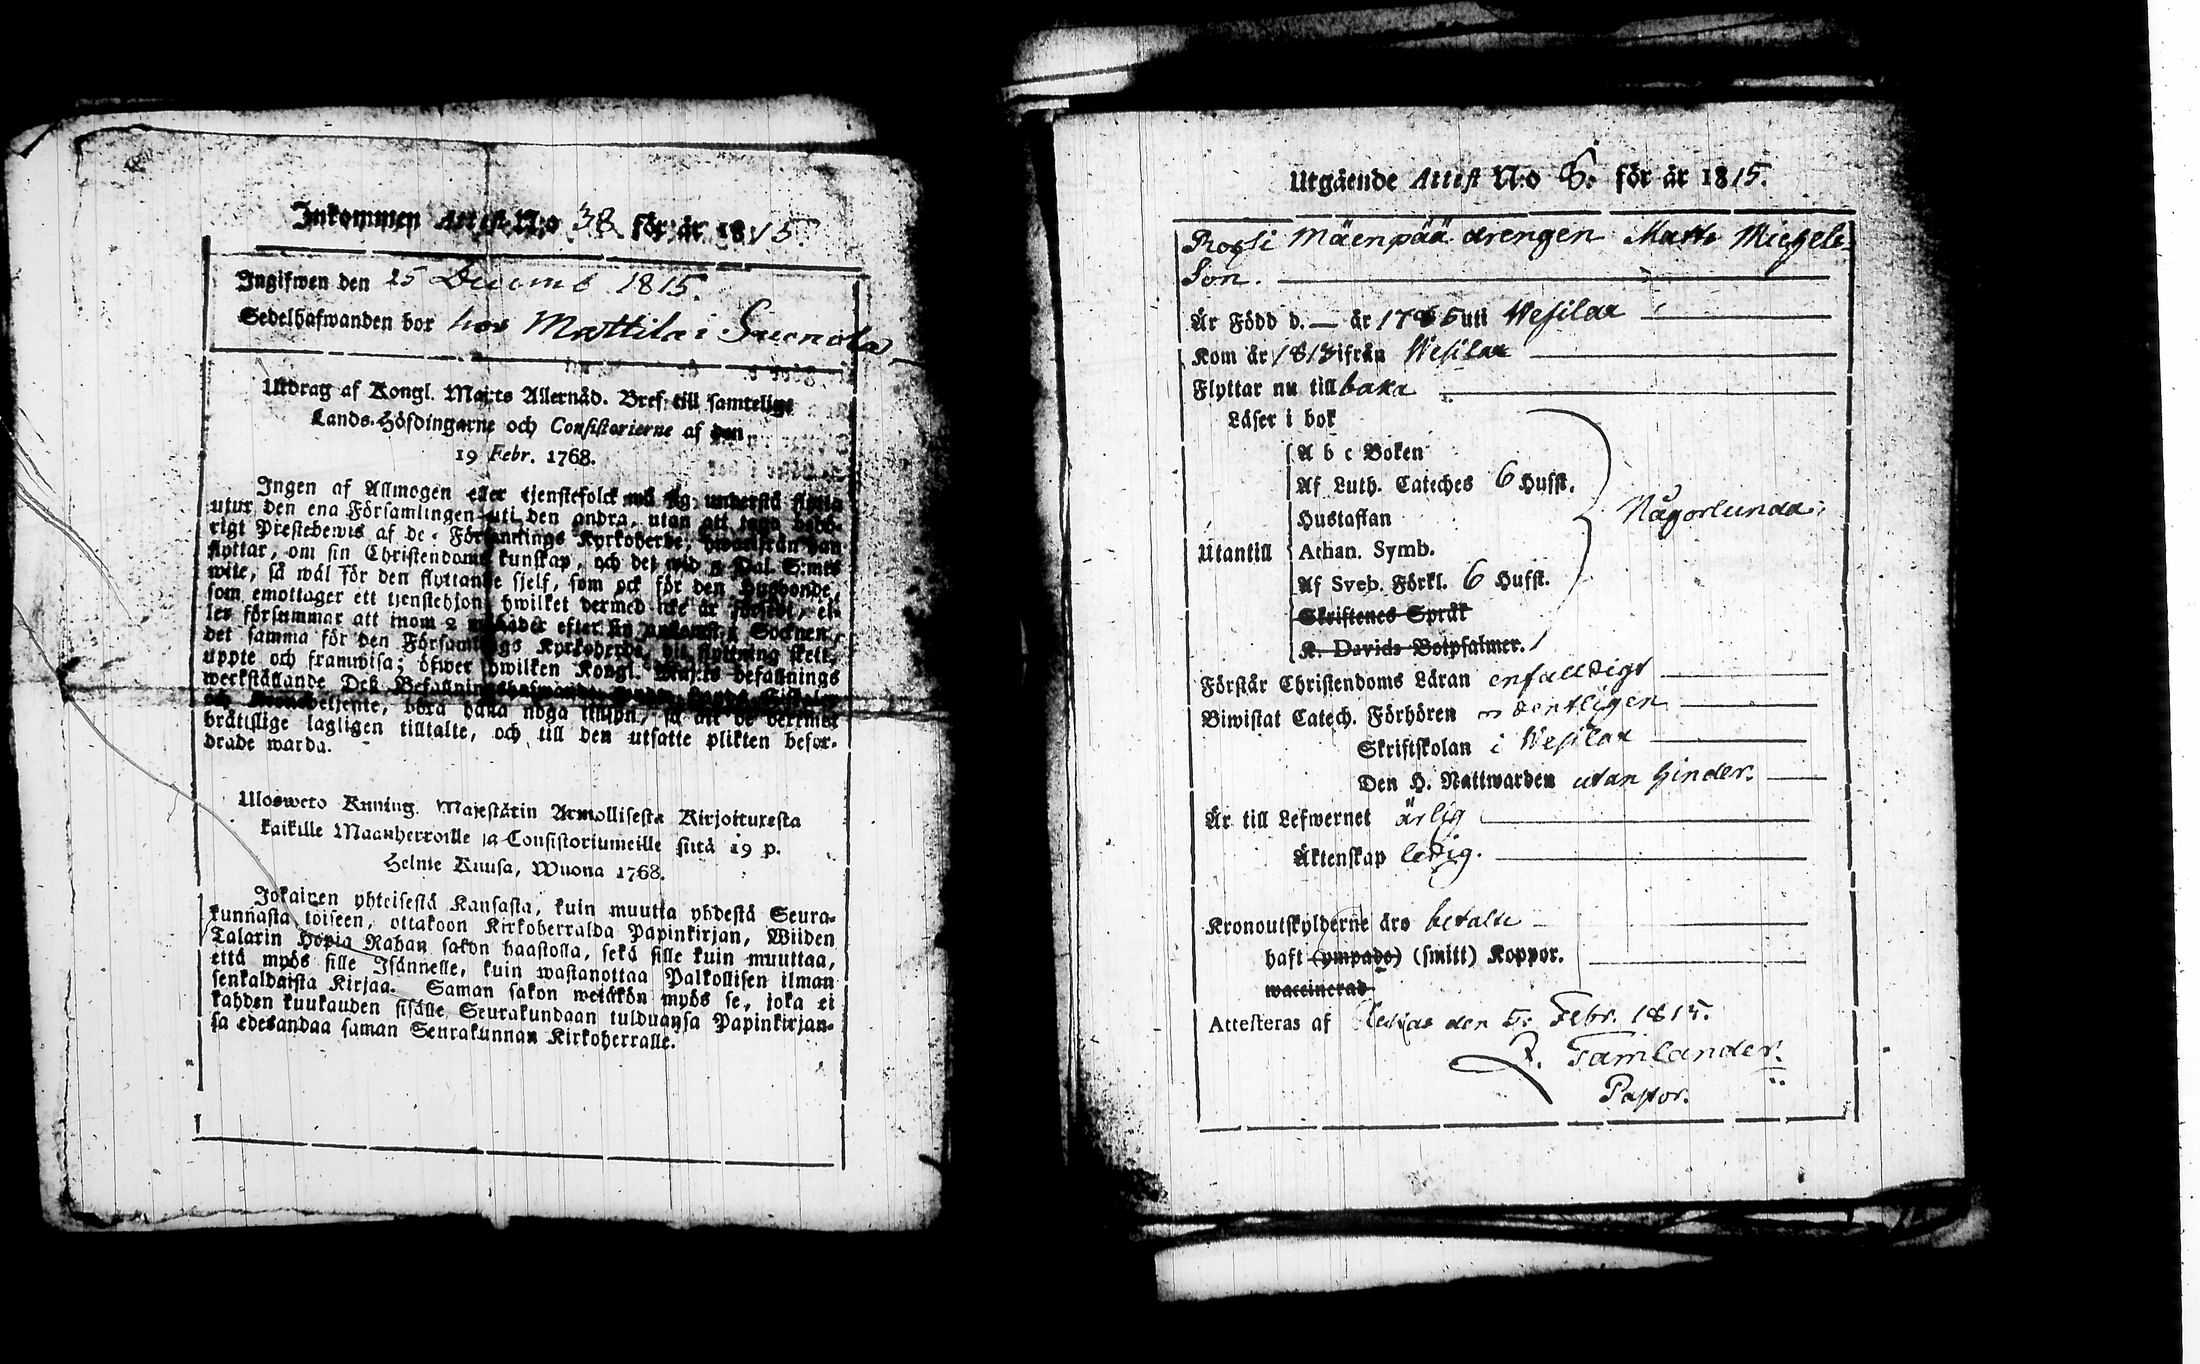 Inkommen Attest N:o 38 för år 1815.
Ingifwen den 25 Decemb 1815.
Sedelhafwanden bor hos Mattila i Suonola
Utdrag af Kongl. Maj:ts Allernåd. Bref till samtelige
Lands-Höfdingarne och Consistorierne af den
19 Febr. 1768.
Ingen af Allmogen eller tjenstefolck må sig understå flytta
utur den ena Församlingen uti den andra, utan att taga behö-
rigt Prestebewis af de Församlings Kyrkoherde, hwarifrån han
flyttar, om sin Christendoms kunskap, och det wid 5 Dal. S:mts
wite, så wäl för den flyttande sjelf, som ock för den Husbonde,
som emottager ett tjenstehjon hwilket dermed icke är försedt, el-
ler försummar att inom 2 månader efter sin ankomst i Socknen,
det samma för den Församlings Kyrkoherde, dit flyttning skett,
uppte och framwisa; öfwer hwilken Kongl. Maj:ts befallnings
werkställande Deß Befallningshafwande
och Kronobetjente, böra hafva noga tillsyn, så att de dermot
bråttslige lagligen tilltalte, och till den utsatte plikten befor-
drade warda.
Ulosweto Kuning. Majestätin Armollisesta Kirjoituxesta
kaikille Maanherroille ja Consistoriumeille siitä 19 p.
Helmie Kuusa, Wuona 1768.
Jokainen yhteisestä Kansasta, kuin muutta yhdestä Seura-
kunnasta toiseen, ottakoon Kirkoherralda Papinkirjan, Wiiden
Talarin Hopia Rahan sakon haastolla, sekä sille kuin muuttaa,
että myös sille Isännelle, kuin wastanottaa Palkollisen ilman
senkaldaista Kirjaa. Saman sakon wetäkön myös se, joka ei
kahden kuukauden sisälle Seurakundaan tulduansa Papinkirjan-
sa edesandaa saman Seurakunnan Kirkoherralle.
Utgående Attest N:o 6. för år 1815.
Mäenpää drengen Matts Michels
Son.
Är Född d. — år 1786 uti Wesilax
Kom år 1813 ifrån Wesilax
Flyttar nu tillbaka
Läser i bok
A b c Boken
Af Luth. Cateches 6 Hufst.
Hustaflan
Någorlunda.
Utantill
Athan. Symb.
Af Sveb. Förkl. 6 Hufst.
Skriftenes Språk
K. Davids Botpsalmer.
Förstår Christendoms Läran enfalldigt
Biwistat Catech. Förhören ordentligen
Skriftskolan i Wesilax
Den H. Nattwarden utan hinder.
Är till Lefwernet ärlig
Äktenskap ledig.
Kronoutskylderne äro betalte
haft (ympade) (smitt) Koppor.
waccinerad
Attesteras af den 5. Febr. 1815.
Tamlander.
Pastor.